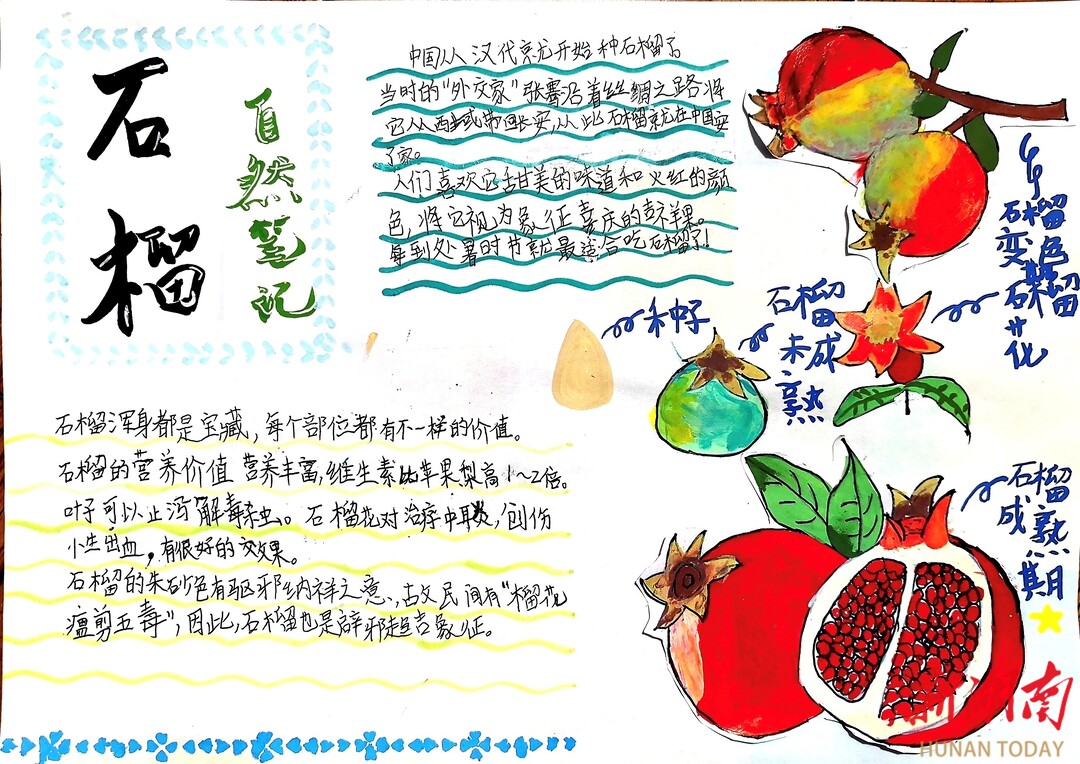 石榴
自然笔记
中国从汉代就开始种石榴了
当时的"外交家"张骞沿着丝绸之路将
它从西域带回长安,从此石榴就在中国安
了家。
人们喜欢它甜美的味道和火红的颜
色,将它视为象征喜庆的吉祥果。
每到处暑时节就最适合吃石榴了!
石榴变色期
石榴花
种子
石榴未成熟
石榴成熟期
石榴浑身都是宝藏,每个部位都有不一样的价值。
石榴的营养价值 营养丰富,维生素比苹果梨高1~2倍。
叶子可以止泻解毒杀虫。石榴花对治疗中耳炎,创伤
小生出血,有很好的效果。
石榴的朱砂色有驱邪纳祥之意,古文民间有"榴花
瘟剪五毒",因此,石榴也是辟邪趋吉象征。
新湖南
HUNAN TODAY